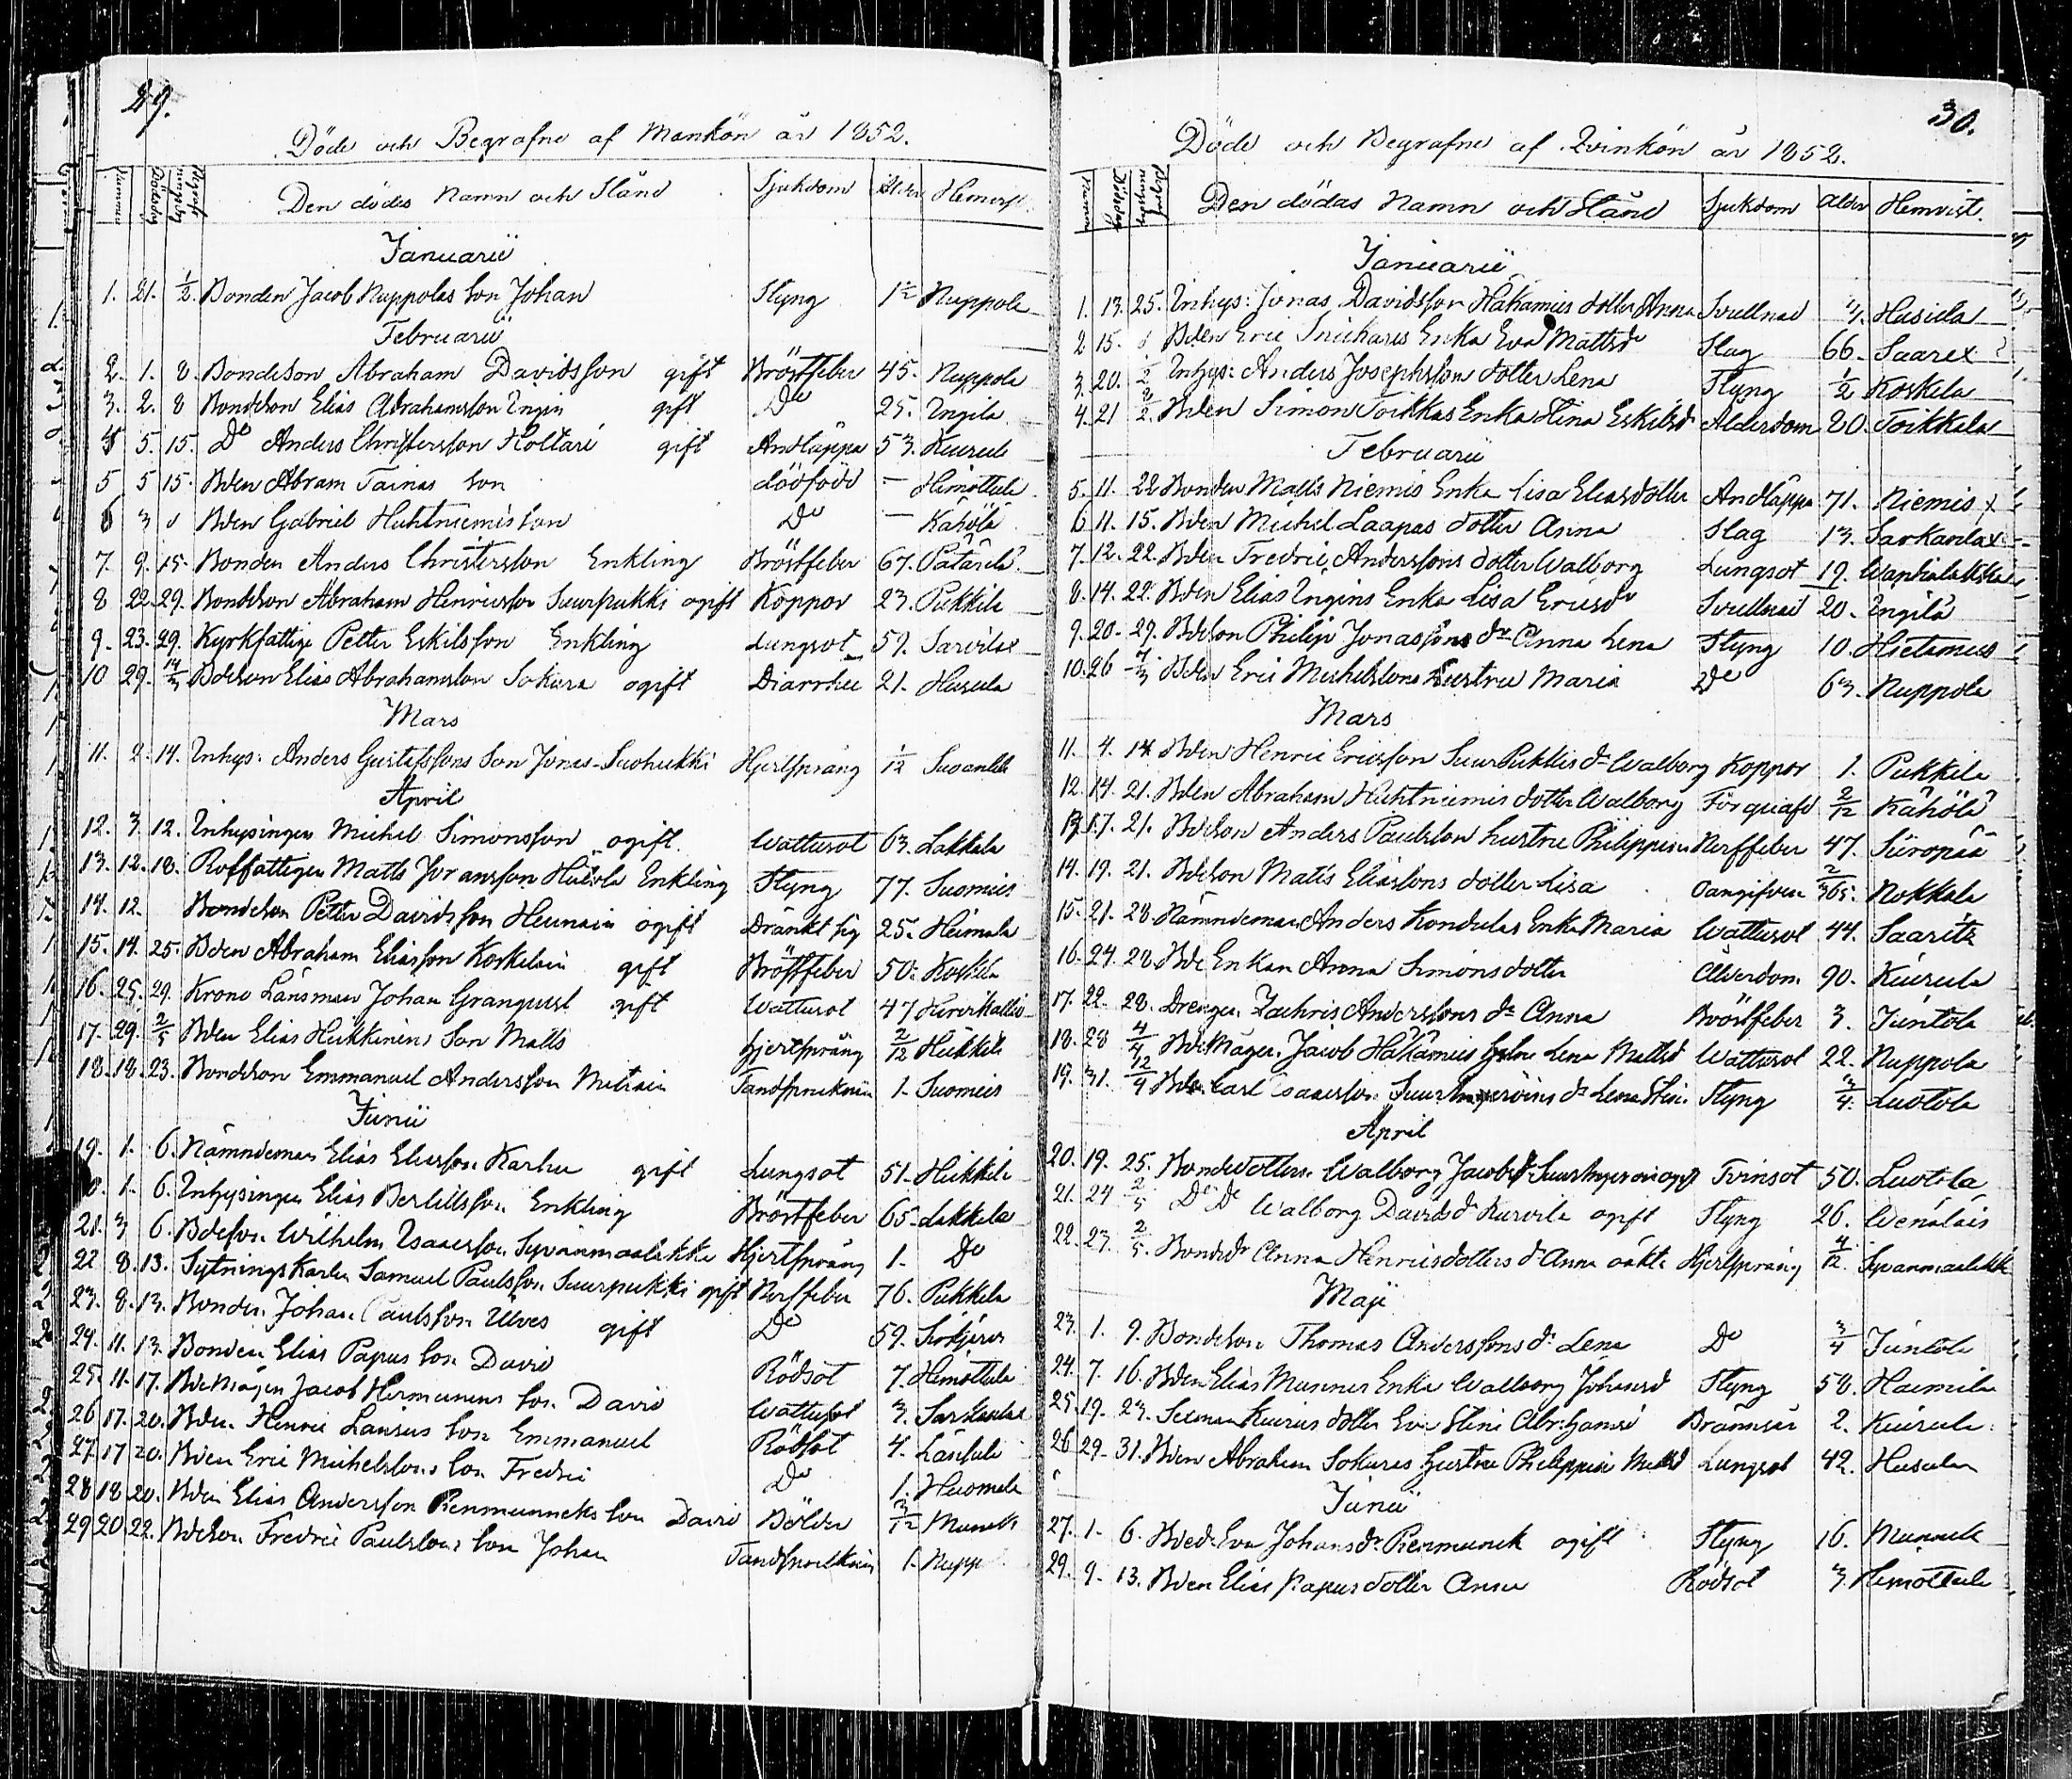 29.
Döde och Begrafne af Mankön år 1852.
Nummer Dödsdag Begrafningsdag Den dödes Namn och Stånd Sjukdom Ålder Hemvist.
Januarii
1. 21. 1/2. Bonden Jacob Nuppolas Son Johan Styng 1 1/2 Nuppola
Februarii
2. 1. 8. Bondeson Abraham Davidsson gift Bröstfeber 45. Nuppola
3. 2. 8 Bondeson Elias Abrahamsson Ingin gift Do 25. Ingila
4 5. 15. Do Anders Christersson Holtari gift Andtäppa 53. Kuurula
5 5 15. Bden Abram Tainas Son dödfödd — Himottula
6 3 8 Bden Gabriel Huhtniemis Son Do — Kähölä
7. 9. 15. Bonden Anders Christersson Enkling Bröstfeber 67. Patarila
8 22. 29. Bondeson Abraham Henricsson Suurpukki ogift Koppor 23. Pukkila
9. 23. 29. Kyrkfattige Petter Eskilsson Enkling Lungsot 59. Sarvilax
10 29. 14/3 Bdeson Elias Abrahamsson Sokura ogift Diarrhee 21. Husula
Mars
11. 2. 14. Inhys: Anders Gustafssons Son Jonas Suohukki Hjertsprång 1/12
April
12. 3. 12. Inhysingen Michel Simonsson ogift. Wattusot 63. Lakkala
13. 12. 18. Rotfattigen Matts Göransson Enkling Styng 77. Suomies
14. 12. Bondeson Petter Davidsson ogift Dränkt sig 25. Heimala
15. 14. 25. Bden Abraham Eliasson Koskelain gift Bröstfeber 50. Koskela
16. 25. 29. Krono Länsman Johan Granqvist gift Wattusot 47 Hirvikallio
17. 29. 2/5 Bden Elias Heikkinens Son Matts Hjertsprång 2/12 Heikkilä
18. 18. 23. Bondeson Emmanuel Andersson 1. Suomies
Junii
19. 1. 6. Nämndeman Elias Eliasson Karhu gift Lungsot 51. Heikkilä
1. 6. Inhysingen Elias Bertillsson Enkling Bröstfeber 65. Lakkala
21. 3 6. Bdeson Wilhelm Isaacsson Syvänmaalakka Hjertsprång 1. Do
22 8. 13. Sytningskarlen Samuel Paulsson Suurpukki gift Nerffeber 76. Pukkila
23. 8. 13. Bonden Johan Paulsson Ulves gift Do 59.
24. 11. 13. Bonden Elias Papus Son David Rödsot 7. Himottula
25. 11. 17. Bdemågen Jacob Hermunens Son David Wattusot 3. Sarkanlax
26 17. 20. Bden Henric Lansus Son Emmanuel Rödsot 4.
27. 17 20. Bden Eric Michelssons Son Fredric Do 1. Husula
28 18 20. Bden Elias Andersson Pienmunneks Son David Bölder 3/12
29 20 22. Bdeson Fredric Paulssons Son Johan 1. Nupp
30.
Döde och Begrafne af Qvinkön år 1852.
Nummer Dödsdag Begrafningsdag Den dödas Namn och Stånd Sjukdom Ålder Hemvist.
Januarii
1. 13. 25. Inhys: Jonas Davidsson Häkämies dotter Anna Svullnad Husula
2 15. Bden Eric Inkinares Enka Eva Mattsdr Slag 66. Saarex
3. 20. Inhys: Anders Josephsson dotter Lena Styng 1/2 Koskela
4. 21 Bden Simon Toikkas Enka Stina Eskilsd Ålderdom 80. Toikkala
Februarii
5. 11. 22 Bonden Matts Niemis Enka Lisa Eliasdotter Andtäppa 71. Niemis x
6 11. 15. Bden Michel Laapas dotter Anna Slag 13. Sarkanlax
7. 12. 22. Bden Fredric Anderssons dotter Walborg Lungsot 19.
8. 14. 22. Bden Elias Ingins Enka Lisa Ericsdr Svullnad 20. Ingila
9. 20. 29. Bdeson Philip Jonassons dr Anna Lena Styng 10. Hietamies
10. 26 7/3 Bden Eric Michelssons Hustru Maria Do 63. Nuppola
Mars
11. 4. 14 Bden Henric Ericsson SuurPukkis dr Walborg Koppor 1. Pukkila
12. 14. 21. Bden Abraham Huhtniemis dotter Walborg Förqvafd 2/12 Kähölä
13 17. 21. Bdeson Anders Paulsson hustru Philippina Nerffeber 47. Süropää
14. 19. 21. Bdeson Matts Eliassons dotter Lisa Oangifven 2/365. Nokkala
15. 21. 28. Nämndeman Anders Kondulas Enka Maria Wattusot 44. Saaritz
16. 24. 28. Bde Enkan Anna Simonsdotter Ålderdom. 90. Kuurula
17. 22. 28. Drengen Zachris Anderssons dr Anna Bröstfeber 3. Juntola
18. 28 4/4 Bdemågen Jacob Häkämies Lena Mattsd Wattusot 22. Nuppola
19. 31. 12/4 Bden Carl Isaacsson dr Lena Stina Styng 3/4. Luotola
April
20. 19. 25. Bondedottern Walborg Jacobsdr ogift Tvinsot 50. Luotola
21. 24 2/5 Do Do Walborg Davidsdr Kurvila ogift Styng 26. Wenäläis
22. 27. 2/5. Bondedr Anna Henricsdotters dr Anna oäkta Hjertsprång 4/12. Syvänmaalakk
Maji
23. 1. 9. Bondeson Thomas Anderssons dr Lena Do 3/4 Juntola
24. 7. 16. Bden Elias Munnes Enka Walborg Johansd Styng 58. Haimila
25 19. 23. dotter Eva Stina Brännsår 2. Kuurula
26 29. 31. Bden Abraham Sokuras hustru Philippina Mattsd Lungsot 42. Husula
Junii
27. 1. 6. Bded. Eva Johansdr Pienmunnek ogift Styng 16. Munnela
29. 9. 13. Bden Elias Papus dotter Anna Rödsot 3. Himottula